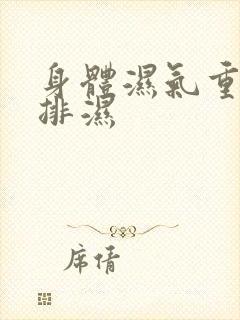 身體濕氣重
排濕
席倩